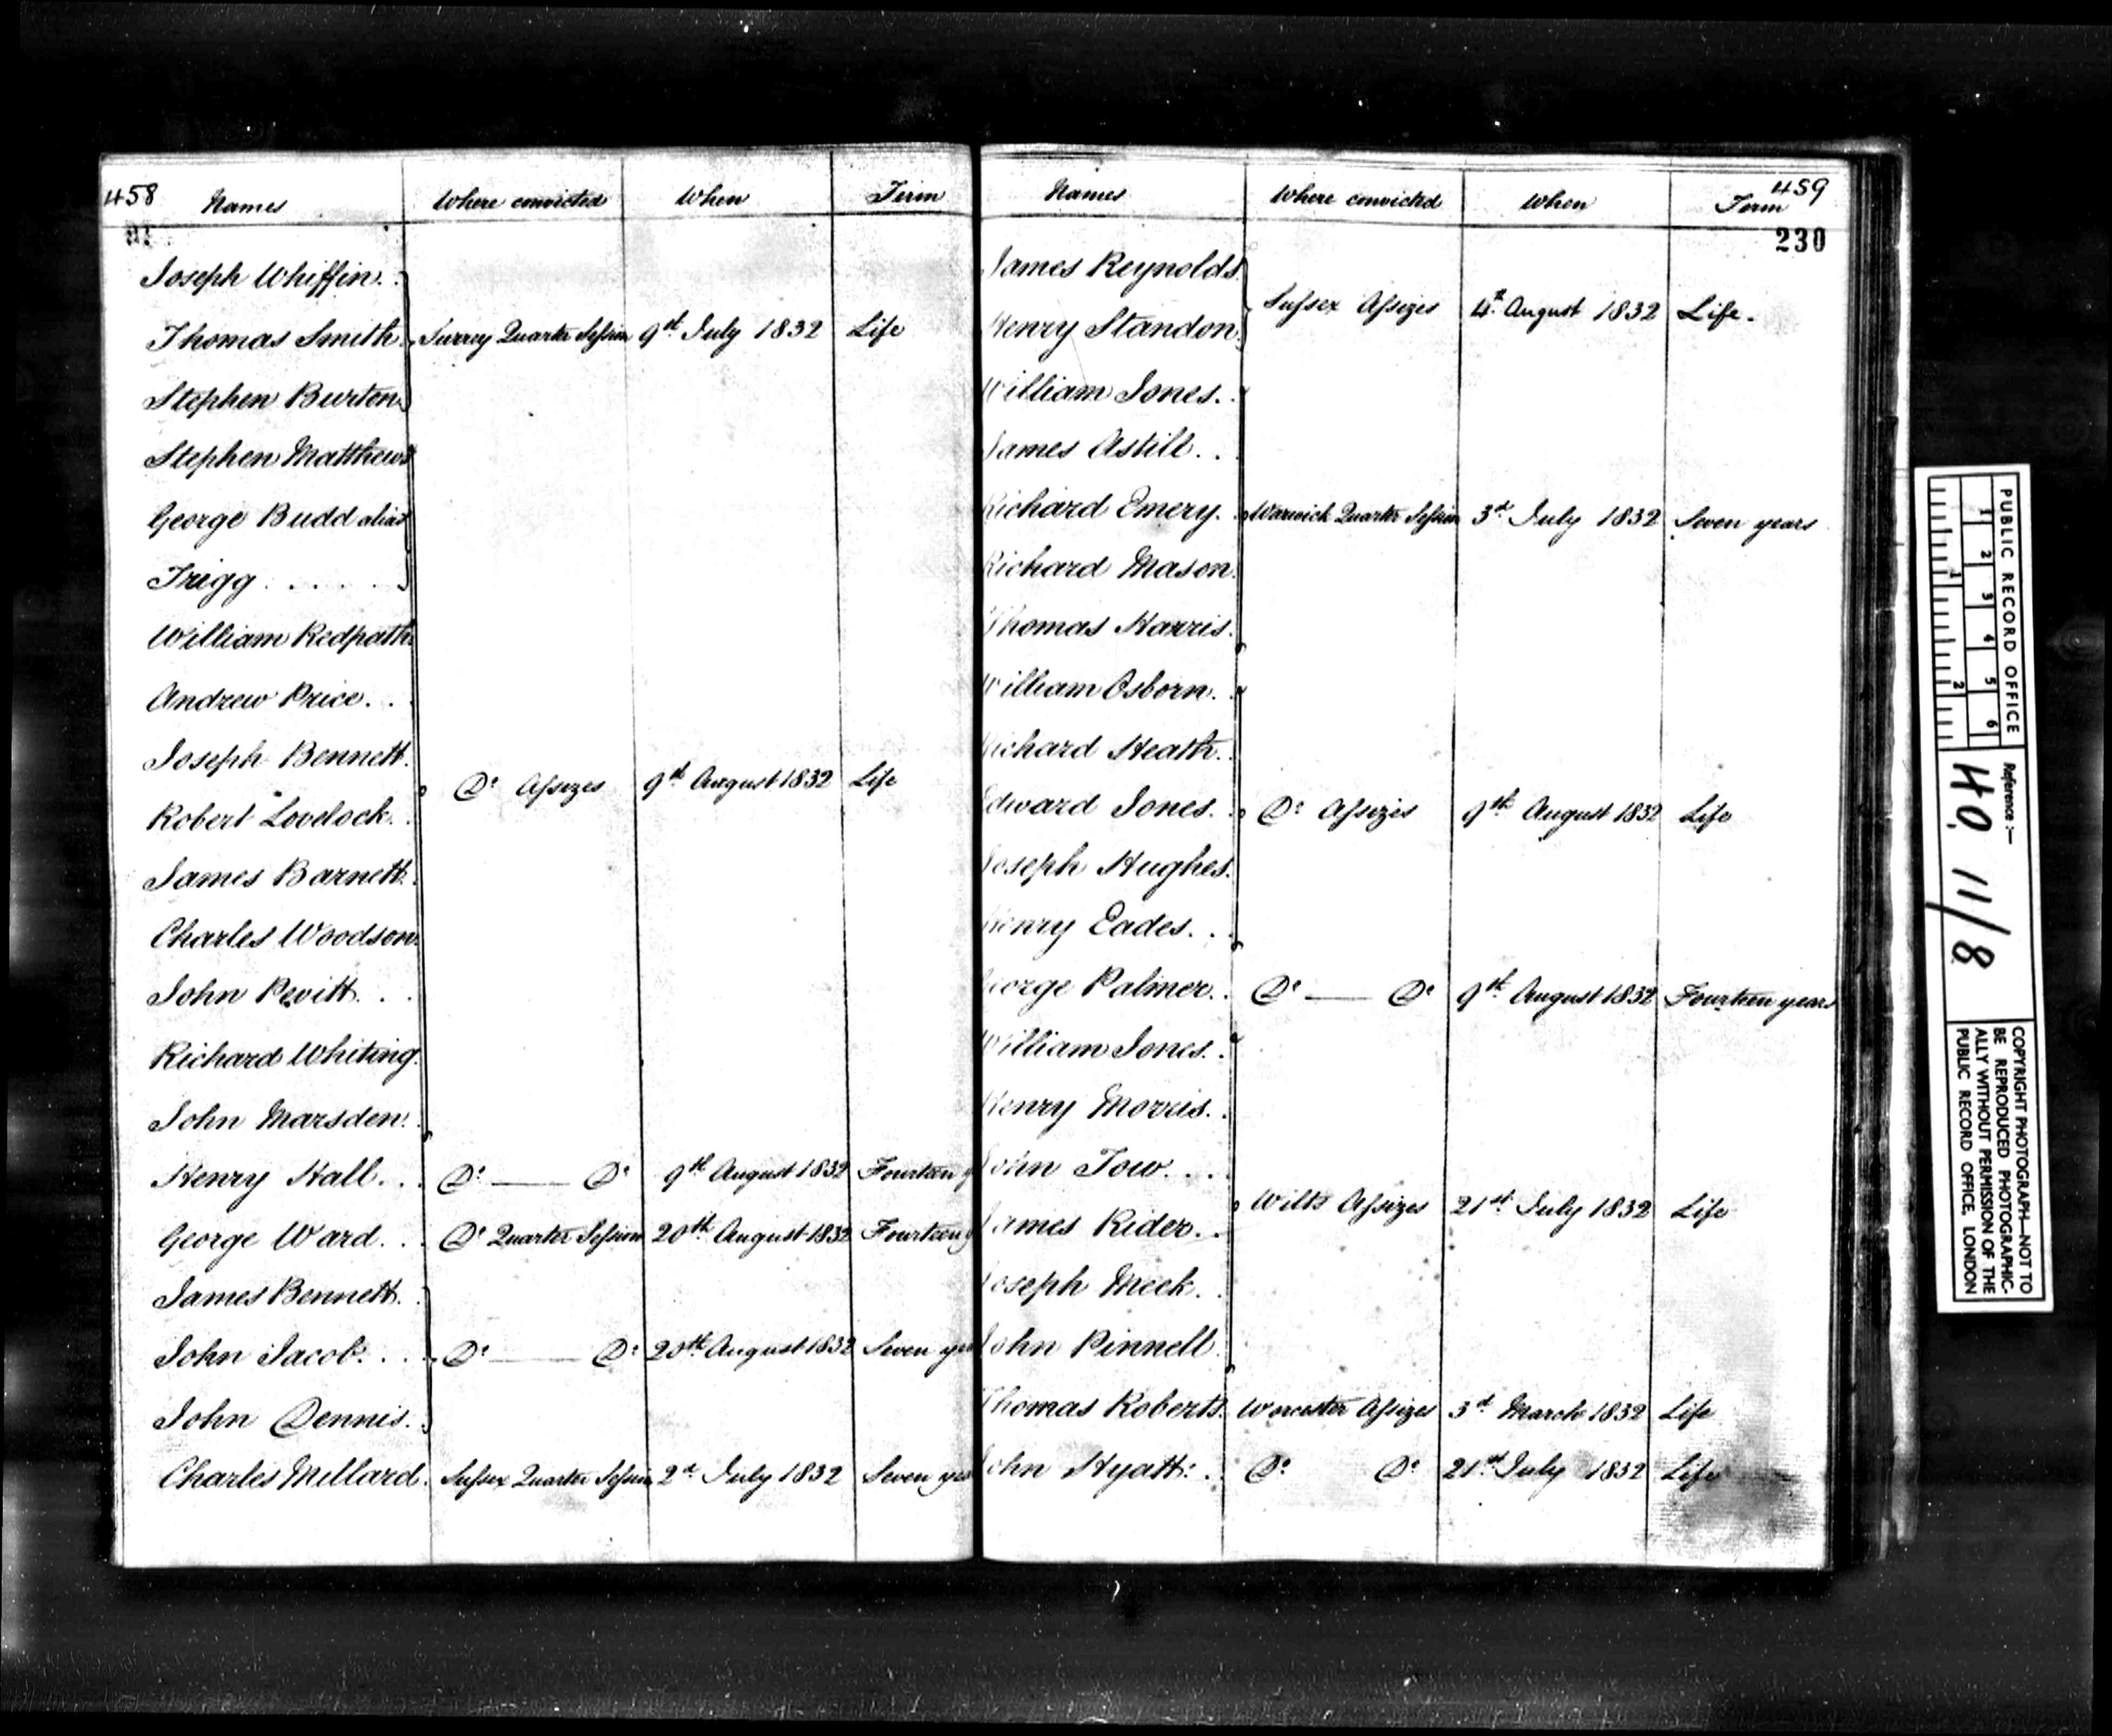 458 Names Where convicted When Term
Joseph Whiffin.
Thomas Smith Surrey Quarter Session 9th July 1832 Life
Stephen Burton
Stephen Matthews
George Budd alias
Trigg . . . .
William Redpath
Andrew Price. .
Joseph Bennett.
Do Assizes 9th August 1832 Life
Robert Lovelock.
James Barnett.
Charles Woodson
John Pevitt. .
Richard Whiting.
John Marsden.
Henry Hall. . . Do —— Do 9th August 1832 Fourteen y
George Ward. . . Do Quarter Session 20th August 1832 Fourteen y
James Bennett.
John Jacob. . . Do —— Do 20th August 1832 Seven yea
John Dennis.
Charles Millard. Sussex Quarter Session 2d July 1832 Seven yea
Names Where convicted When Term 459
230
James Reynolds
Sussex Assizes 4th August 1832 Life.
Henry Standon
William Jones. .
James Astill. . .
Richard Emery. Warwick Quarter Session 3d July 1832 Seven years
Richard Mason.
Thomas Harris.
William Osborn. .
Richard Heath. .
Edward Jones. . Do Assizes 9th August 1832 Life
Joseph Hughes.
Henry Eades. . .
George Palmer. . Do —— Do 9th August 1832 Fourteen years
William Jones. .
Henry Morris. .
John Tow. . . .
Wilts Assizes 21st July 1832 Life
James Rider. . .
Joseph Meek. .
John Pinnell
Thomas Roberts. Worcester Assizes 3d March 1832 Life
John Hyatt. . . Do Do 21st July 1832 Life
PUBLIC RECORD OFFICE
1 2 3 4 5 6
1 2
Reference :—
HO 11/8
COPYRIGHT PHOTOGRAPH—NOT TO
BE REPRODUCED PHOTOGRAPHIC-
ALLY WITHOUT PERMISSION OF THE
PUBLIC RECORD OFFICE, LONDON